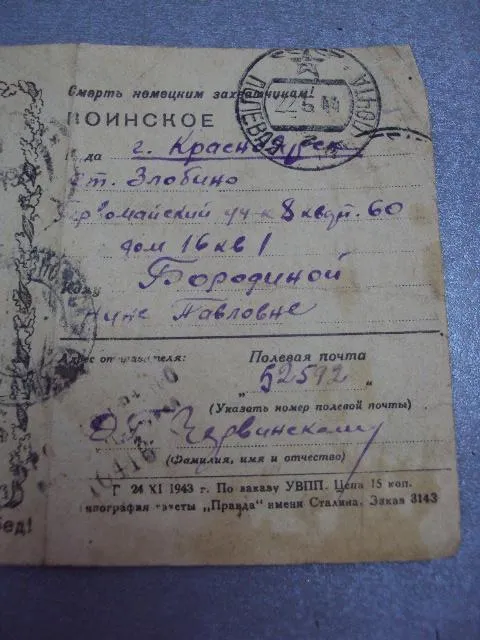 Смерть немецким захватчикам!
ВОИНСКОЕ
ПОЛЕВАЯ ПОЧТА
22 5
Куда г. Красноярск
ст. Злобино
рвомайский уч-к 8 квдт. 60
дом 16 кв 1
Кому Бородиной
Нине Павловне
Адрес отправителя: Полевая почта
„ 52592 “
(Указать номер полевой почты)
Червинскому
(Фамилия, имя и отчество)
Г 24 XI 1943 г. По заказу УВПП. Цена 15 коп.
типография газеты „Правда“ имени Сталина. Заказ 3143
бед!